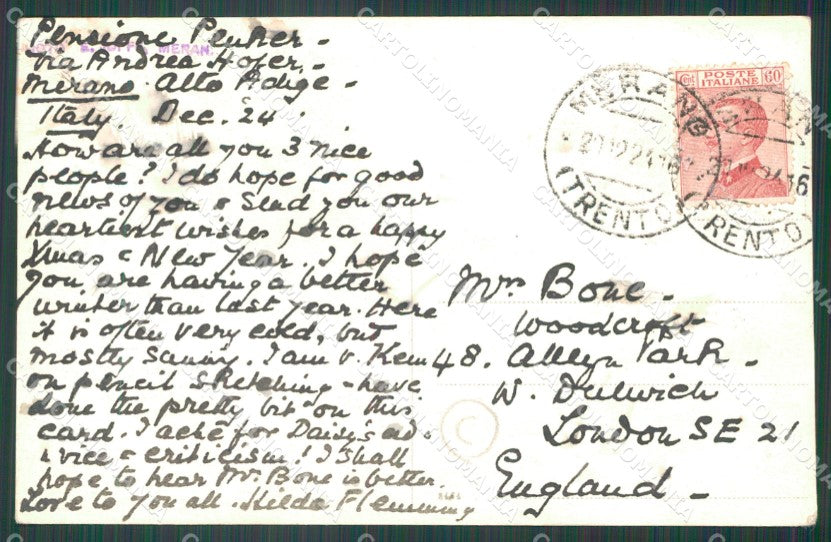 Pensione Peuker -
Via Andrea Hofer -
Merano. Alto Adige -
Italy. Dec. 24.
How are all you 3 nice
people? I do hope for good
news of you & send you our
heartiest wishes for a happy
Xmas & New Year. I hope
you are having a better
winter than last year. Here
it is often very cold, but
mostly sunny. I am v. keen
on pencil sketching - have
done the pretty bit on this
card. I ache for Daisy's ad-
vice & criticism! I shall
hope to hear Mr. Bone is better.
Love to you all. Hilda Flemming
MERAN.
POSTE
ITALIANE
Cent 60
MERANO
(TRENTO)
(TRENTO)
Mrs Bone -
Woodcroft
48. Alleyn Park -
W. Dulwich
London SE 21
England -
CARTOLINOMANIA